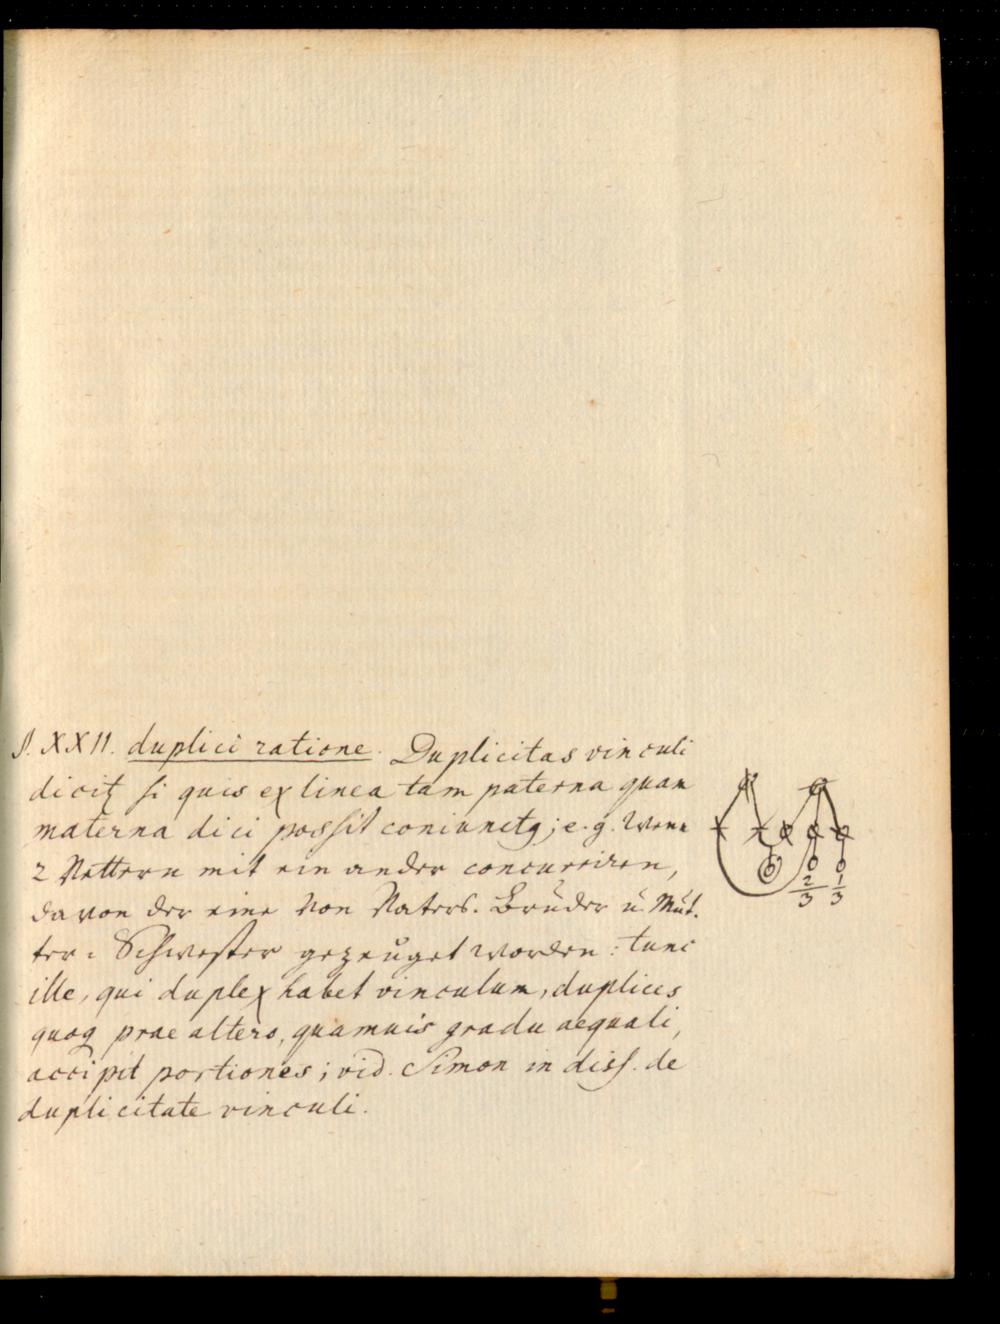 §. XXII. duplici ratione. Duplicitas vinculi
dicitꝫ si quis ex linea tam paterna quam
materna dici possit coniunctꝯ; e. g. Wenn
2 Vettern mit ein ander concurriren,
davon der eine Von Vaters-Bruder ŭ. Mŭt-
ter-Schwester gezeŭget worden: tunc
ille, qui duplex habet vinculum, duplices
quoq prae altero, quamuis gradu aequali,
accipit portiones; vid. Simon in diss. de
duplicitate vinculi.
2/3 1/3